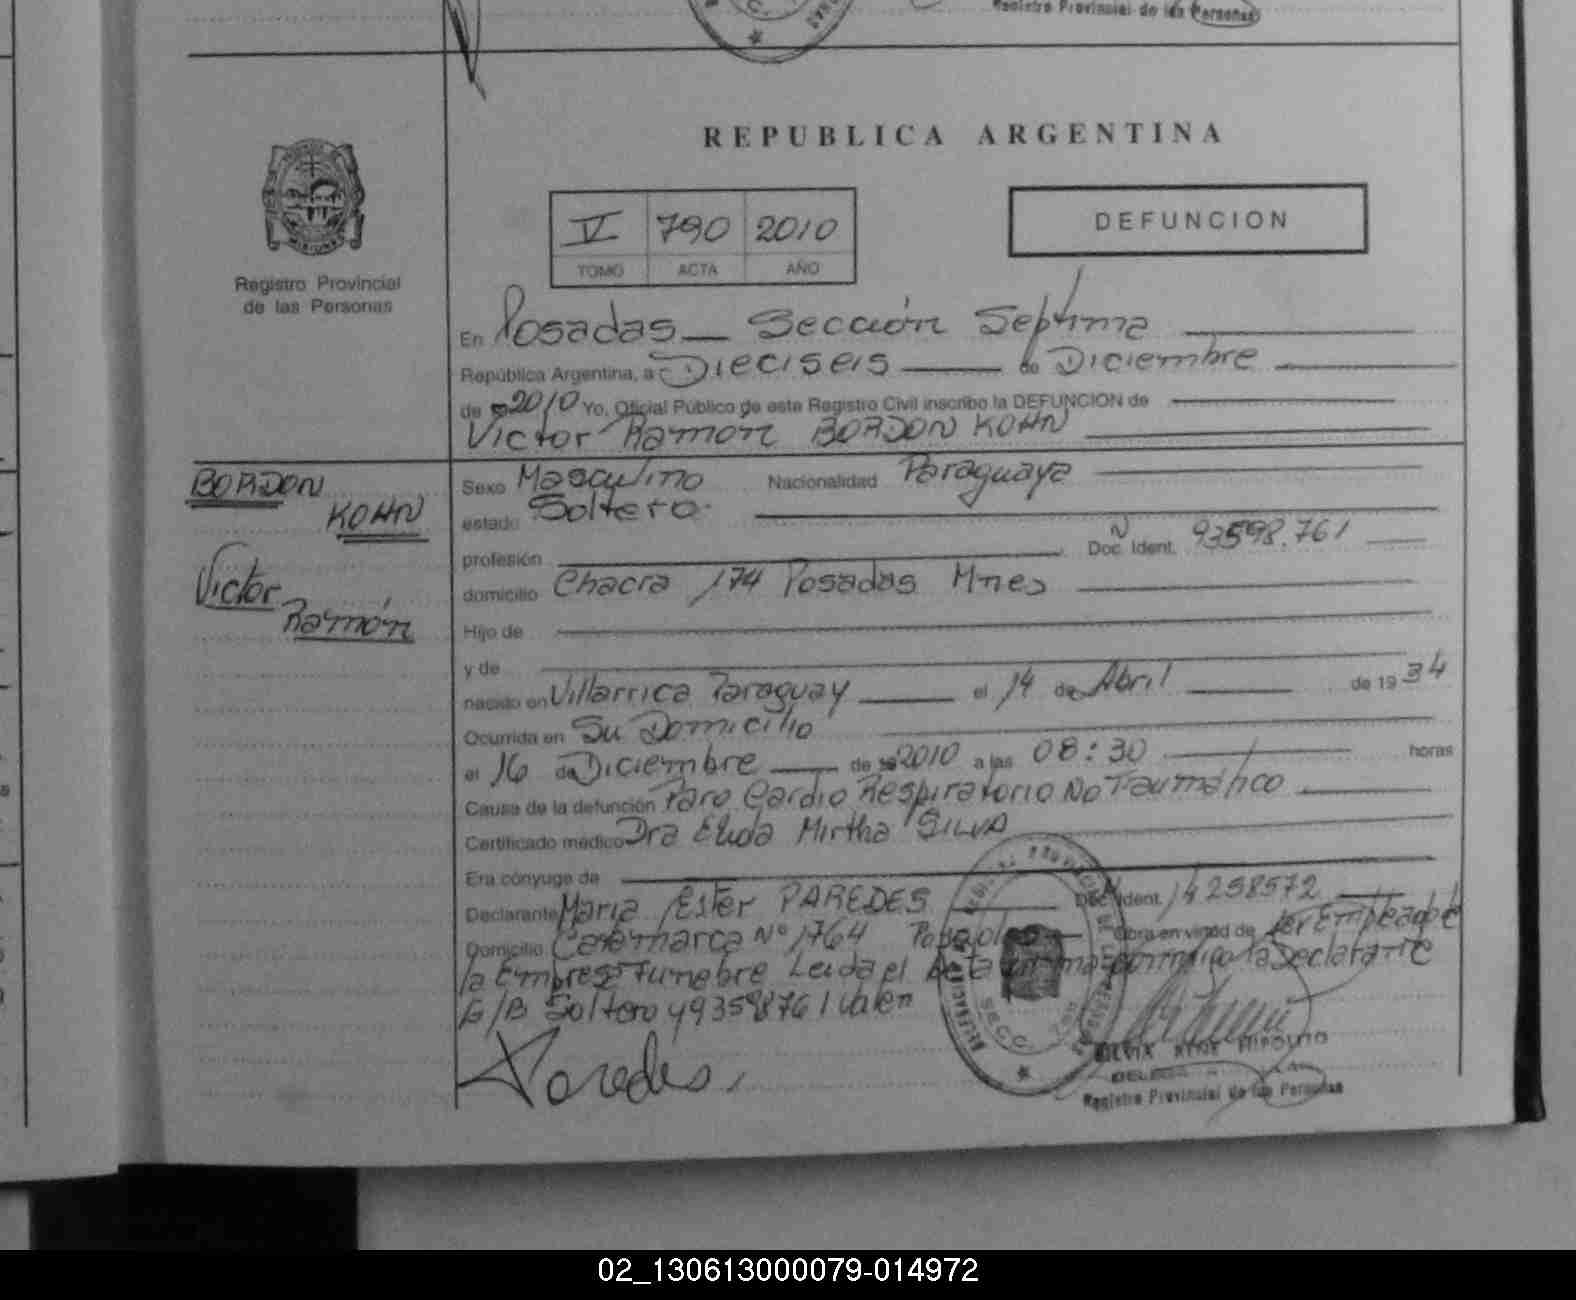 Registro Provincial de las Personas
REPUBLICA ARGENTINA
V 790 2010
TOMO ACTA AÑO
DEFUNCION
Registro Provincial
de las Personas
En Posadas Sección Septima
República Argentina, a Dieciseis de Diciembre
de 2010 Yo, Oficial Público de este Registro Civil inscribo la DEFUNCION de
Victor Ramón BORDON KOHN
BORDON
KOHN
Victor
Ramón
Sexo Masculino Nacionalidad Paraguaya
estado Soltero
profesión Doc. Ident. 93598.761
domicilio Chacra 174 Posadas Mnes
Hijo de
y de
nacido en Villarrica Paraguay el 14 de Abril de 1934
Ocurrida en Su Domicilio
el 16 de Diciembre de 2010 a las 08:30 horas
Causa de la defunción Paro Cardio Respiratorio No Traumático
Certificado médico Dra Elida Mirtha SILVA
Era cónyuge de
Declarante Maria Ester PAREDES Doc. Ident. 14258572
Domicilio Catamarca Nº 1764 Posadas Obra en virtud de ser Empleada de
la Empresa Funebre Leida el Acta la Declarante
E/B Soltero y 93598761 Valen
Paredes
SILVIA RENE HIPOLITO
DELEGADA
Registro Provincial de las Personas
02_130613000079-014972